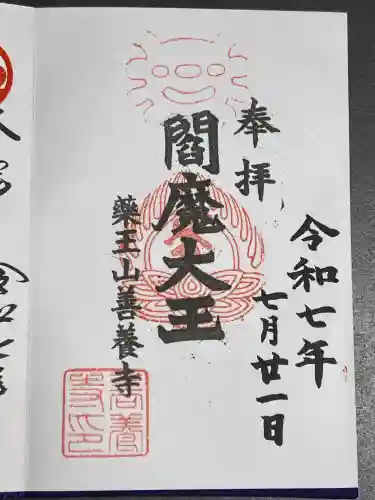 奉拝
令和七年
七月廿一日
閻魔大王
藥王山善養寺
善養寺印